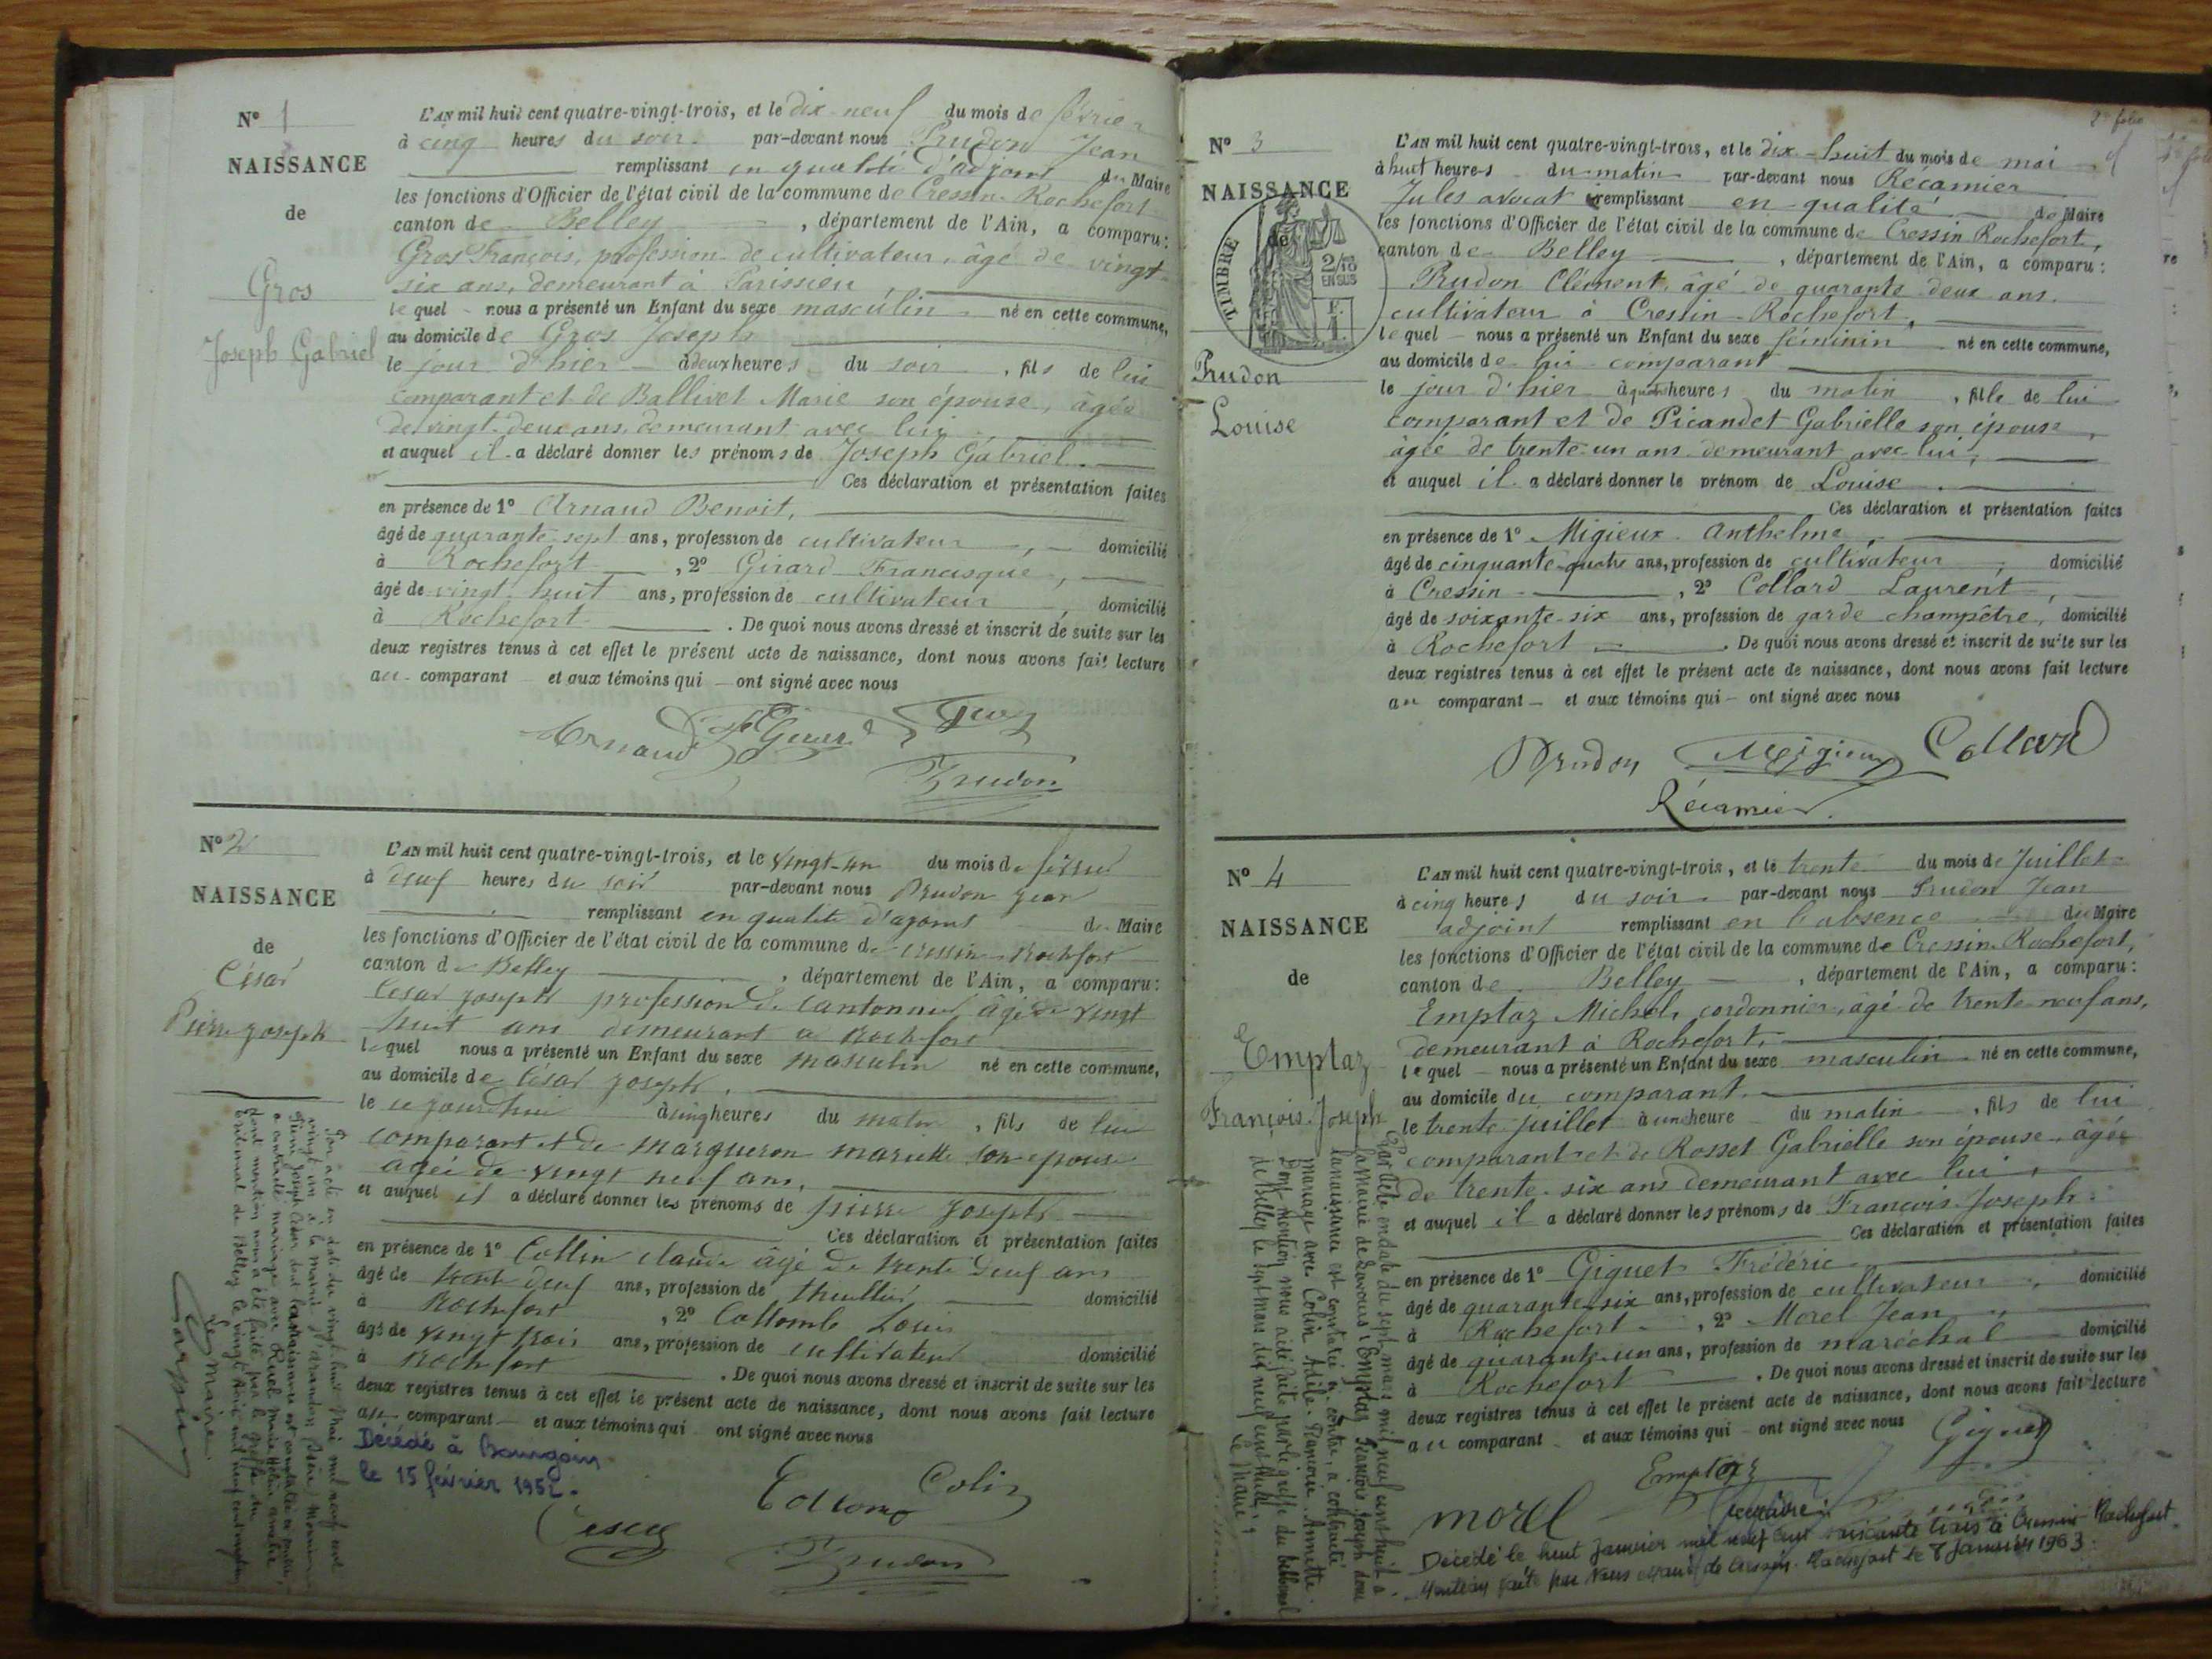 N° 1
NAISSANCE
de
Gros
Joseph Gabriel
L'AN mil huit cent quatre-vingt-trois, et le dix-neuf du mois de février
à cinq heures du soir par-devant nous Prudon Jean
remplissant en qualité d'adjoint du Maire
les fonctions d'Officier de l'état civil de la commune de Cressin-Rochefort
canton de Belley, département de l'Ain, a comparu:
Gros François, profession de cultivateur, âgé de vingt-
six ans, demeurant à Parissieu,
lequel nous a présenté un Enfant du sexe masculin né en cette commune,
au domicile de Gros Joseph
le jour d'hier à deux heures du soir, fils de lui
comparant et de Ballivet Marie son épouse, âgée
de vingt-deux ans, demeurant avec lui
et auquel il a déclaré donner les prénoms de Joseph Gabriel.
Ces déclaration et présentation faites
en présence de 1° Arnaud Benoit,
âgé de quarante-sept ans, profession de cultivateur, domicilié
à Rochefort, 2° Girard Francisque,
âgé de vingt-huit ans, profession de cultivateur, domicilié
à Rochefort. De quoi nous avons dressé et inscrit de suite sur les
deux registres tenus à cet effet le présent acte de naissance, dont nous avons fait lecture
au comparant et aux témoins qui ont signé avec nous
Arnaud Girard Gros
Prudon
N° 2
NAISSANCE
de
César
Pierre joseph
L'AN mil huit cent quatre-vingt-trois, et le vingt-un du mois de février
à neuf heures du soir par-devant nous Prudon jean
remplissant en qualité d'ajoint du Maire
les fonctions d'Officier de l'état civil de la commune de cressin-Rochfort
canton de Belley, département de l'Ain, a comparu:
César joseph profession de cantonnier âgé de vingt
huit ans demeurant a Rochfort
lequel nous a présenté un Enfant du sexe masculin né en cette commune,
au domicile de César joseph,
le ce jourdhui à cinq heures du matin, fils de lui
comparant et de Margueron mariette son epouse
agée de vingt neuf ans,
et auquel il a déclaré donner les prénoms de pierre joseph
Ces déclaration et présentation faites
en présence de 1° Collin claude âgé de trente deuf ans
âgé de trente deuf ans, profession de domicilié
à Rochefort, 2° Collomb Louis
âgé de vingt trois ans, profession de cultivateur domicilié
à Rochfort. De quoi nous avons dressé et inscrit de suite sur les
deux registres tenus à cet effet le présent acte de naissance, dont nous avons fait lecture
au comparant et aux témoins qui ont signé avec nous
Décédé à Bourgoin
le 15 février 1952.
Collomb Colin
Cesar
Prudon
Par acte en date du vingt-huit Mai mil neuf cent
vingt un à la mairie d'arandon Isère Monsieur
Pierre Joseph César dont la naissance est constatée ci contre,
a contracté mariage avec
dont mention nous a été faite par le greffe du
tribunal de Belley le vingt mil neuf cent vingt un
Le Maire
Carrier
N° 3
NAISSANCE
de
TIMBRE
2/10
EN SUS
F.
1.
Prudon
Louise
2e folio
L'AN mil huit cent quatre-vingt-trois, et le dix-huit du mois de mai
à huit heures du matin par-devant nous Récamier
Jules avocat remplissant en qualité de Maire
les fonctions d'Officier de l'état civil de la commune de Cressin Rochefort,
canton de Belley, département de l'Ain, a comparu:
Prudon Clément, âgé de quarante deux ans,
cultivateur à Cressin-Rochefort,
lequel nous a présenté un Enfant du sexe féminin né en cette commune,
au domicile de lui comparant
le jour d'hier à quatre heures du matin, fille de lui
comparant et de Picandet Gabrielle son épouse,
âgée de trente-un ans demeurant avec lui,
et auquel il a déclaré donner le prénom de Louise.
Ces déclaration et présentation faites
en présence de 1° Migieux Anthelme,
âgé de cinquante-quatre ans, profession de cultivateur, domicilié
à Cressin, 2° Collard Laurent,
âgé de soixante-six ans, profession de garde champêtre, domicilié
à Rochefort. De quoi nous avons dressé et inscrit de suite sur les
deux registres tenus à cet effet le présent acte de naissance, dont nous avons fait lecture
au comparant et aux témoins qui ont signé avec nous
Prudon Migieux Collard
Récamier
N° 4
NAISSANCE
de
Emptaz
François-Joseph
L'AN mil huit cent quatre-vingt-trois, et le trente du mois de Juillet
à cinq heures du soir par-devant nous Prudon Jean
adjoint remplissant en l'absence du Maire
les fonctions d'Officier de l'état civil de la commune de Cressin-Rochefort,
canton de Belley, département de l'Ain, a comparu:
Emptaz Michel, cordonnier, âgé de trente-neuf ans,
demeurant à Rochefort,
lequel nous a présenté un Enfant du sexe masculin né en cette commune,
au domicile du comparant.
le trente juillet à une heure du matin, fils de lui
comparant et de Rosset Gabrielle son épouse, âgée
de trente-six ans demeurant avec lui,
et auquel il a déclaré donner les prénoms de François Joseph.
Ces déclaration et présentation faites
en présence de 1° Giguet Frédéric
âgé de quarante-six ans, profession de cultivateur, domicilié
à Rochefort, 2° Morel Jean,
âgé de quarante-un ans, profession de maréchal domicilié
à Rochefort. De quoi nous avons dressé et inscrit de suite sur les
deux registres tenus à cet effet le présent acte de naissance, dont nous avons fait lecture
au comparant et aux témoins qui ont signé avec nous
Giguet
Emptaz
morel
Décédé le huit Janvier mil neuf cent soixante trois à Cressin-Rochefort
Mention faite par Nous Maire de Cressin-Rochefort le 8 Janvier 1963
Par acte en date du sept mars mil neuf cent huit à
la Mairie de Lavours, Emptaz François Joseph dont
la naissance est constatée ci contre, a contracté
mariage avec Colin Adèle Annette.
Dont mention nous a été faite par le greffe du tribunal
de Belley le sept mars dix neuf cent huit.
Le Maire